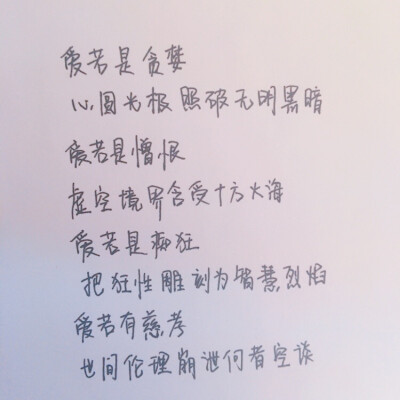 爱若是贪婪
心圆光极照破无明黑暗
爱若是憎恨
虚空境界含受十方火海
爱若是痴狂
把狂性雕刻为智慧烈焰
爱若有慈孝
世间伦理崩泄何者空谈